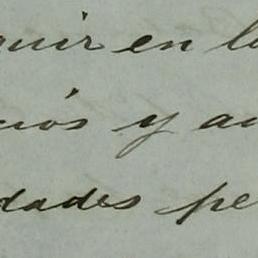 quir en la
ciós y au
dades pe